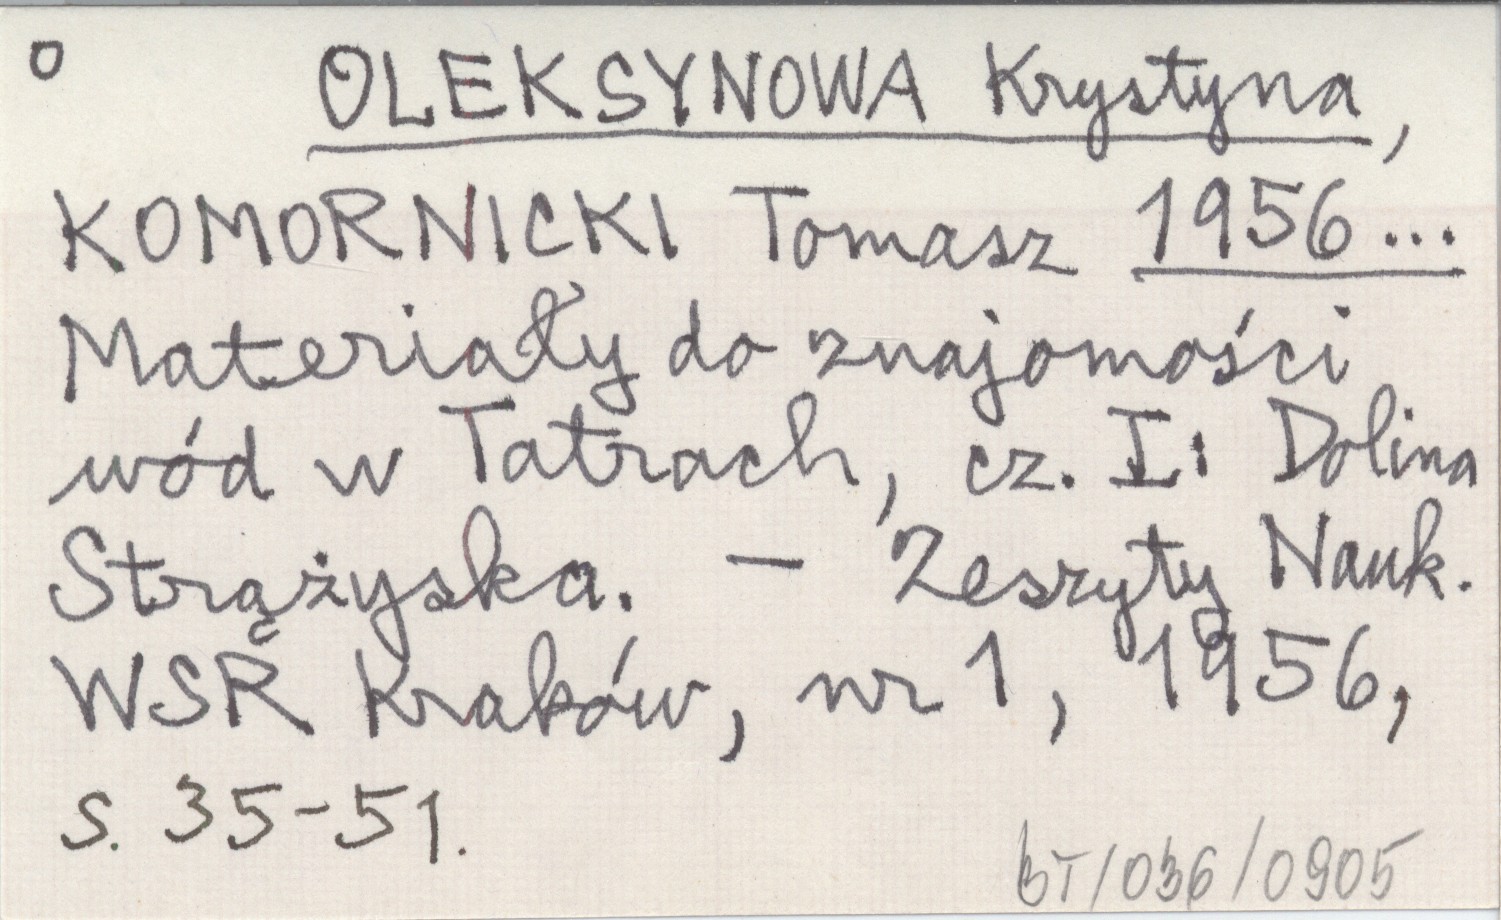 O OLEKSYNOWA Krystyna,
KOMORNICKI Tomasz 1956...
Materiały do znajomości
wód w Tatrach, cz. I: Dolina
Strążyska. — Zeszyty Nauk.
WSR Kraków, nr 1, 1956,
s. 35-51.
BT/036/0905